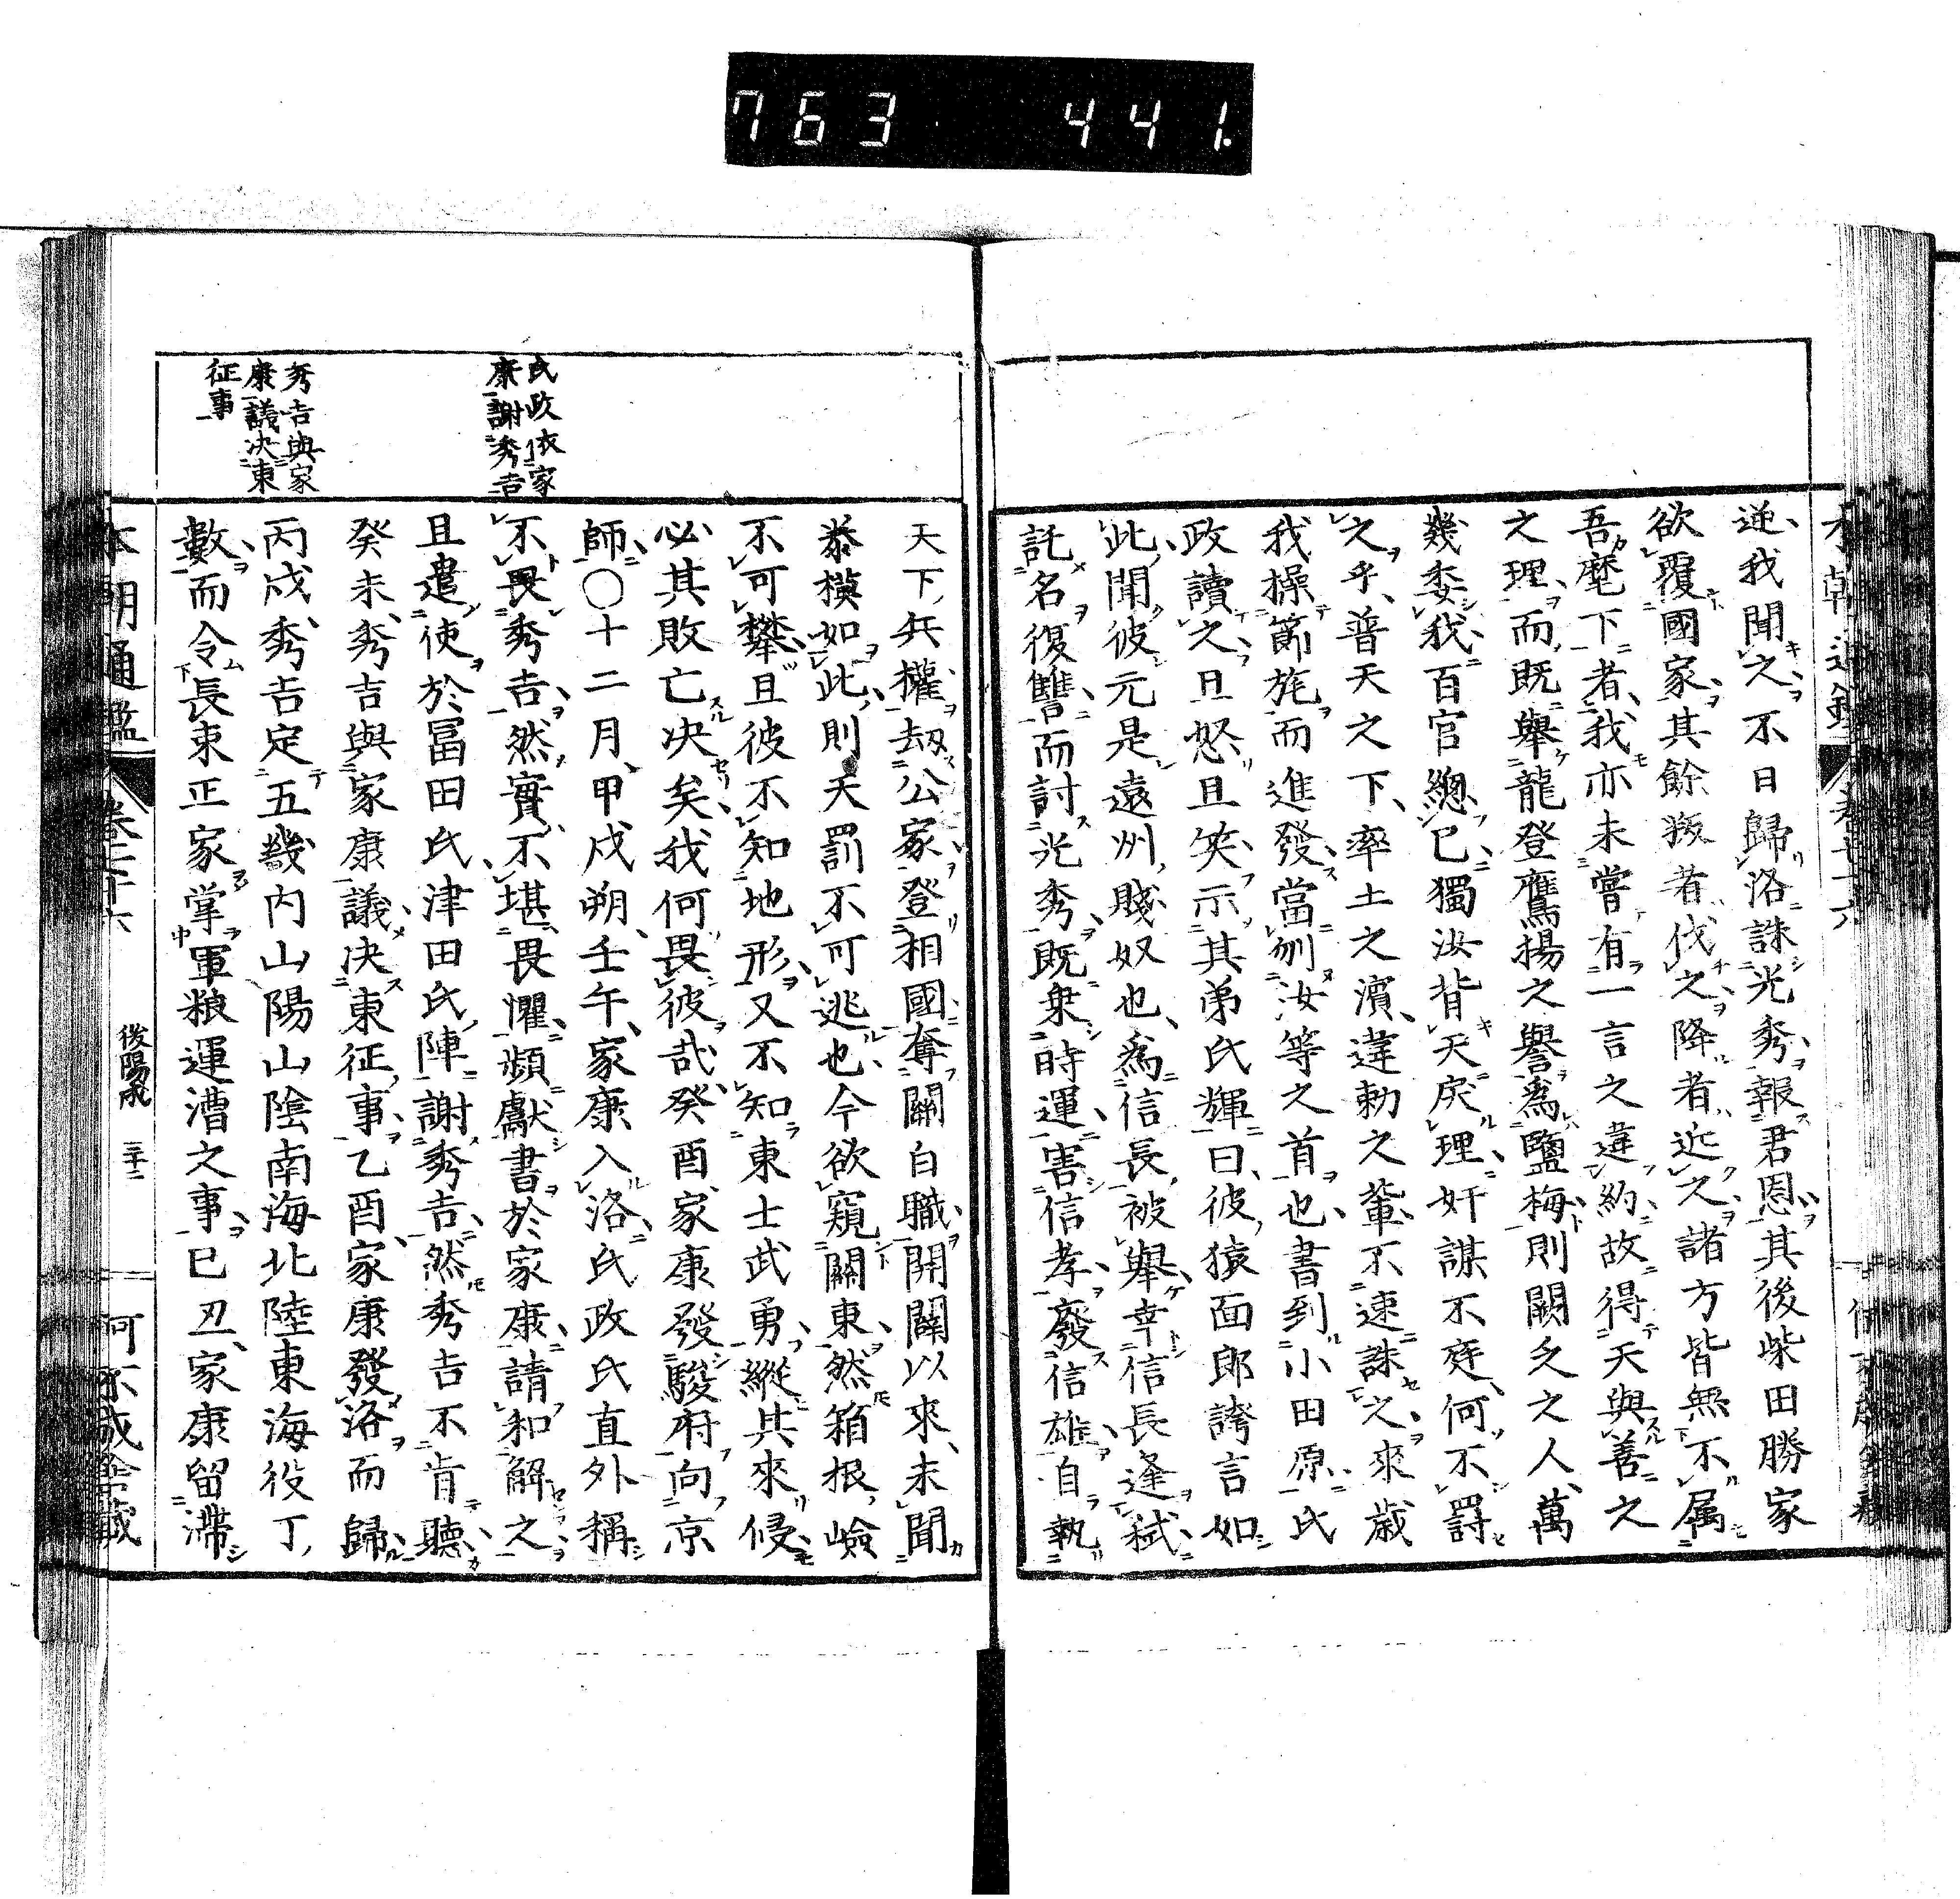 763 441.
逆我聞之不日歸洛誅光秀報君恩其後柴田勝家
欲覆國家其餘叛者伐之降者近之諸方皆無不属
吾麾下者我亦未嘗有一言之違約故得天與善之
之理而既舉龍登鷹揚之譽爲鹽梅則闕之人萬
幾委我百官總已獨汝背天戾理奸謀不庭何不罸
之乎普天之下率土之濱違勅之輩不速誅之來歳
我操節旄而進發當刎汝等之首也書到小田原氏
政讀之且怒且笑示其弟氏輝曰彼猿面郎誇言如
此聞彼元是遠州賤奴也爲信長被舉幸信長逢弑
託名復讐而討光秀既乗時運害信孝廢信雄自執
天下兵權劫公家登相國奪關白職開闢以來未聞
恭模如此則天罰不可逃也今欲窺關東然箱根嶮
不可攀且彼不知地形又不知東士武勇縱其來侵
必其敗亡决矣我何畏彼哉癸酉家康發駿府向京
師○十二月甲戌朔壬午家康入洛氏政氏直外稱
不畏秀吉然實不堪畏懼頻獻書於家康請和解之
且遣使於冨田氏津田氏陣謝秀吉然秀吉不肯聽
癸未秀吉與家康議决東征事乙酉家康發洛而歸
丙戌秀吉定五畿内山陽山陰南海北陸東海役丁
數而令長束正家掌軍粮運漕之事巳丑家康留滯
氏政依家
康謝秀吉
秀吉與家
康議决東
征事
本朝通鑑
後陽成